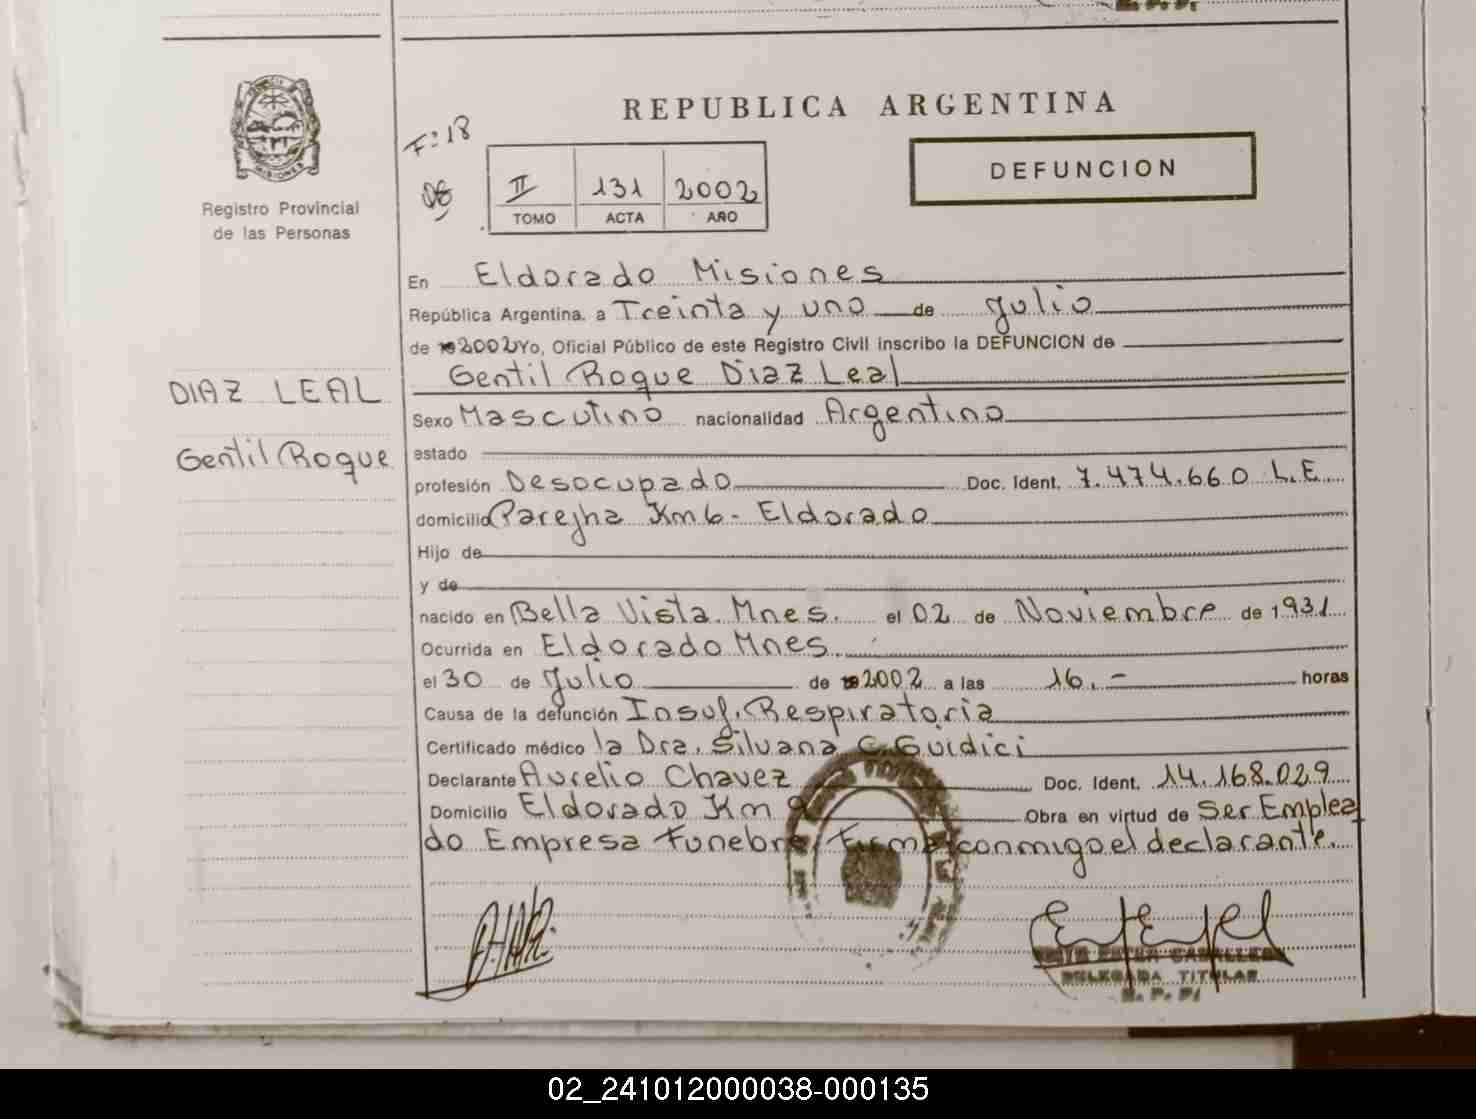 REPUBLICA ARGENTINA
DEFUNCION
F: 18
II 131 2002
TOMO ACTA AÑO
MISIONES
Registro Provincial
de las Personas
DIAZ LEAL
Gentil Roque
En Eldorado Misiones
República Argentina, a Treinta y uno de Julio
de 2002 Yo, Oficial Público de este Registro Civil inscribo la DEFUNCION de
Gentil Roque Diaz Leal
Sexo Masculino nacionalidad Argentino
estado
profesión Desocupado Doc. Ident. 7.474.660 L.E
domicilio Parejha Km 6 - Eldorado
Hijo de
y de
nacido en Bella Vista. Mnes. el 02 de Noviembre de 1931
Ocurrida en Eldorado Mnes.
el 30 de Julio de 2002 a las 16.- horas
Causa de la defunción Insuf. Respiratoria
Certificado médico la Dra. Silvana C. Guidici
Declarante Aurelio Chavez Doc. Ident. 14.168.029
Domicilio Eldorado Km 9 Obra en virtud de Ser Emplea
do Empresa Funebre, Firma conmigo el declarante.
DELEGADA TITULAR
R. P. P.
02_241012000038-000135